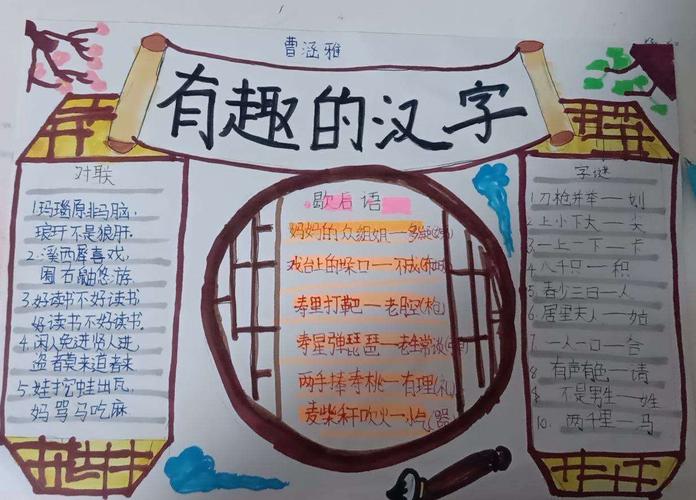 曹涵雅
有趣的汉字
对联
1.玛瑙原非马脑,
琅玕不是狼肝.
2.溪西犀喜戏,
囿右鼬悠游.
3.好读书不好读书
好读书不好读书.
4.闲人免进贤人进,
盗者莫来道者来
5.娃打它蛙出瓦,
妈骂马吃麻
歇后语
妈妈的众姐妹—多
戏台上的垛口—不成
寿里打靶—老腔(枪)
寿星弹琵琶—老生常谈
两手捧寿桃—有理(礼)
麦柴秆吹火—小气(器)
字谜
1.刀枪并牵—划
2.上小下大—尖
3.一上一下—卡
4.八千只—积
5.春少三日—人
6.居里夫人—姑
7.一人一口—合
8.有声有色—请
9.不是男生—姓
10.两千里—马